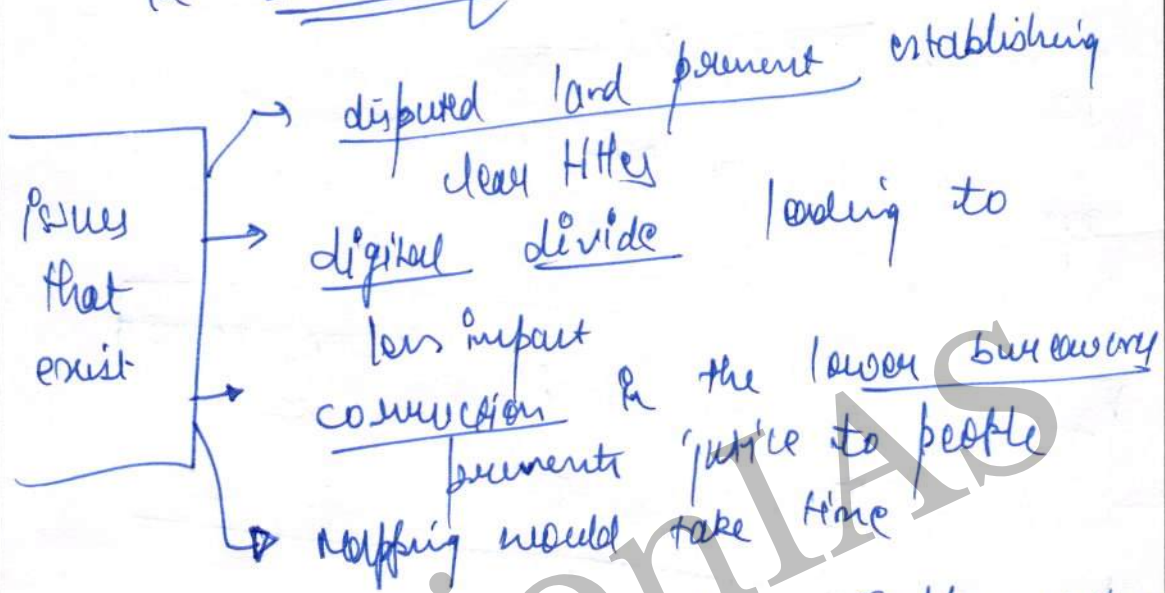 issues
that
exist
disputed land prevent establishing
clear titles
digital divide leading to
less impact
corruption in the lower bureaucracy
prevents justice to people
mapping would take time